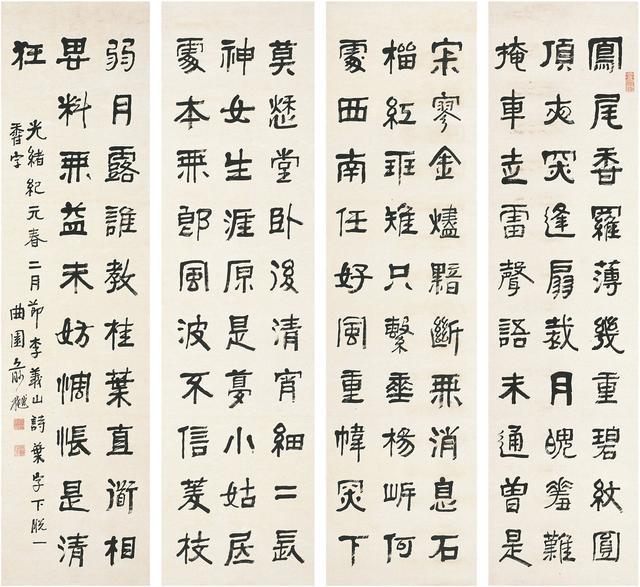 鳳尾香羅薄幾重碧紋圓
頂夜深逢扇裁月魄羞難
掩車走雷聲語未通曾是
寂寥金燼黯斷無消息石
榴紅班騅只繫垂楊岸何
處西南任好風重幃深下
莫愁堂臥後清宵細二長
神女生涯原是夢小姑居
處本無郎風波不信菱枝
弱月露誰教桂葉直道相
思料無益未妨惆悵是清
狂
光緒紀元春二月節李義山詩葉字下脫一
香字
曲園俞樾